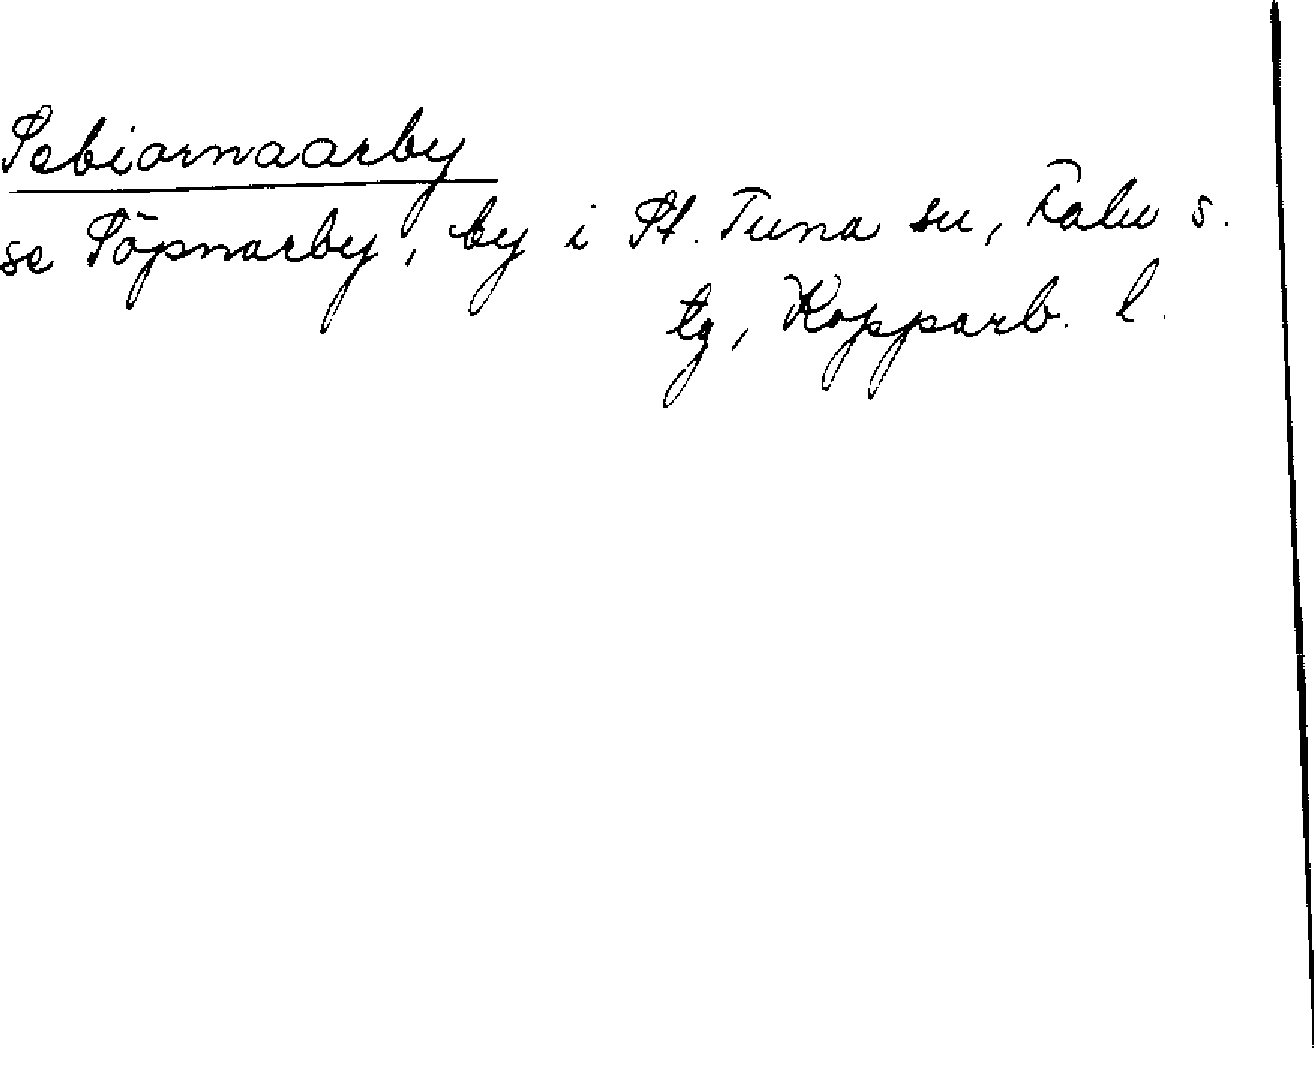 Sebiornaarby
se Söpnarby, by i St. Tuna sn, Falu s.
tg, Kopparb. l.